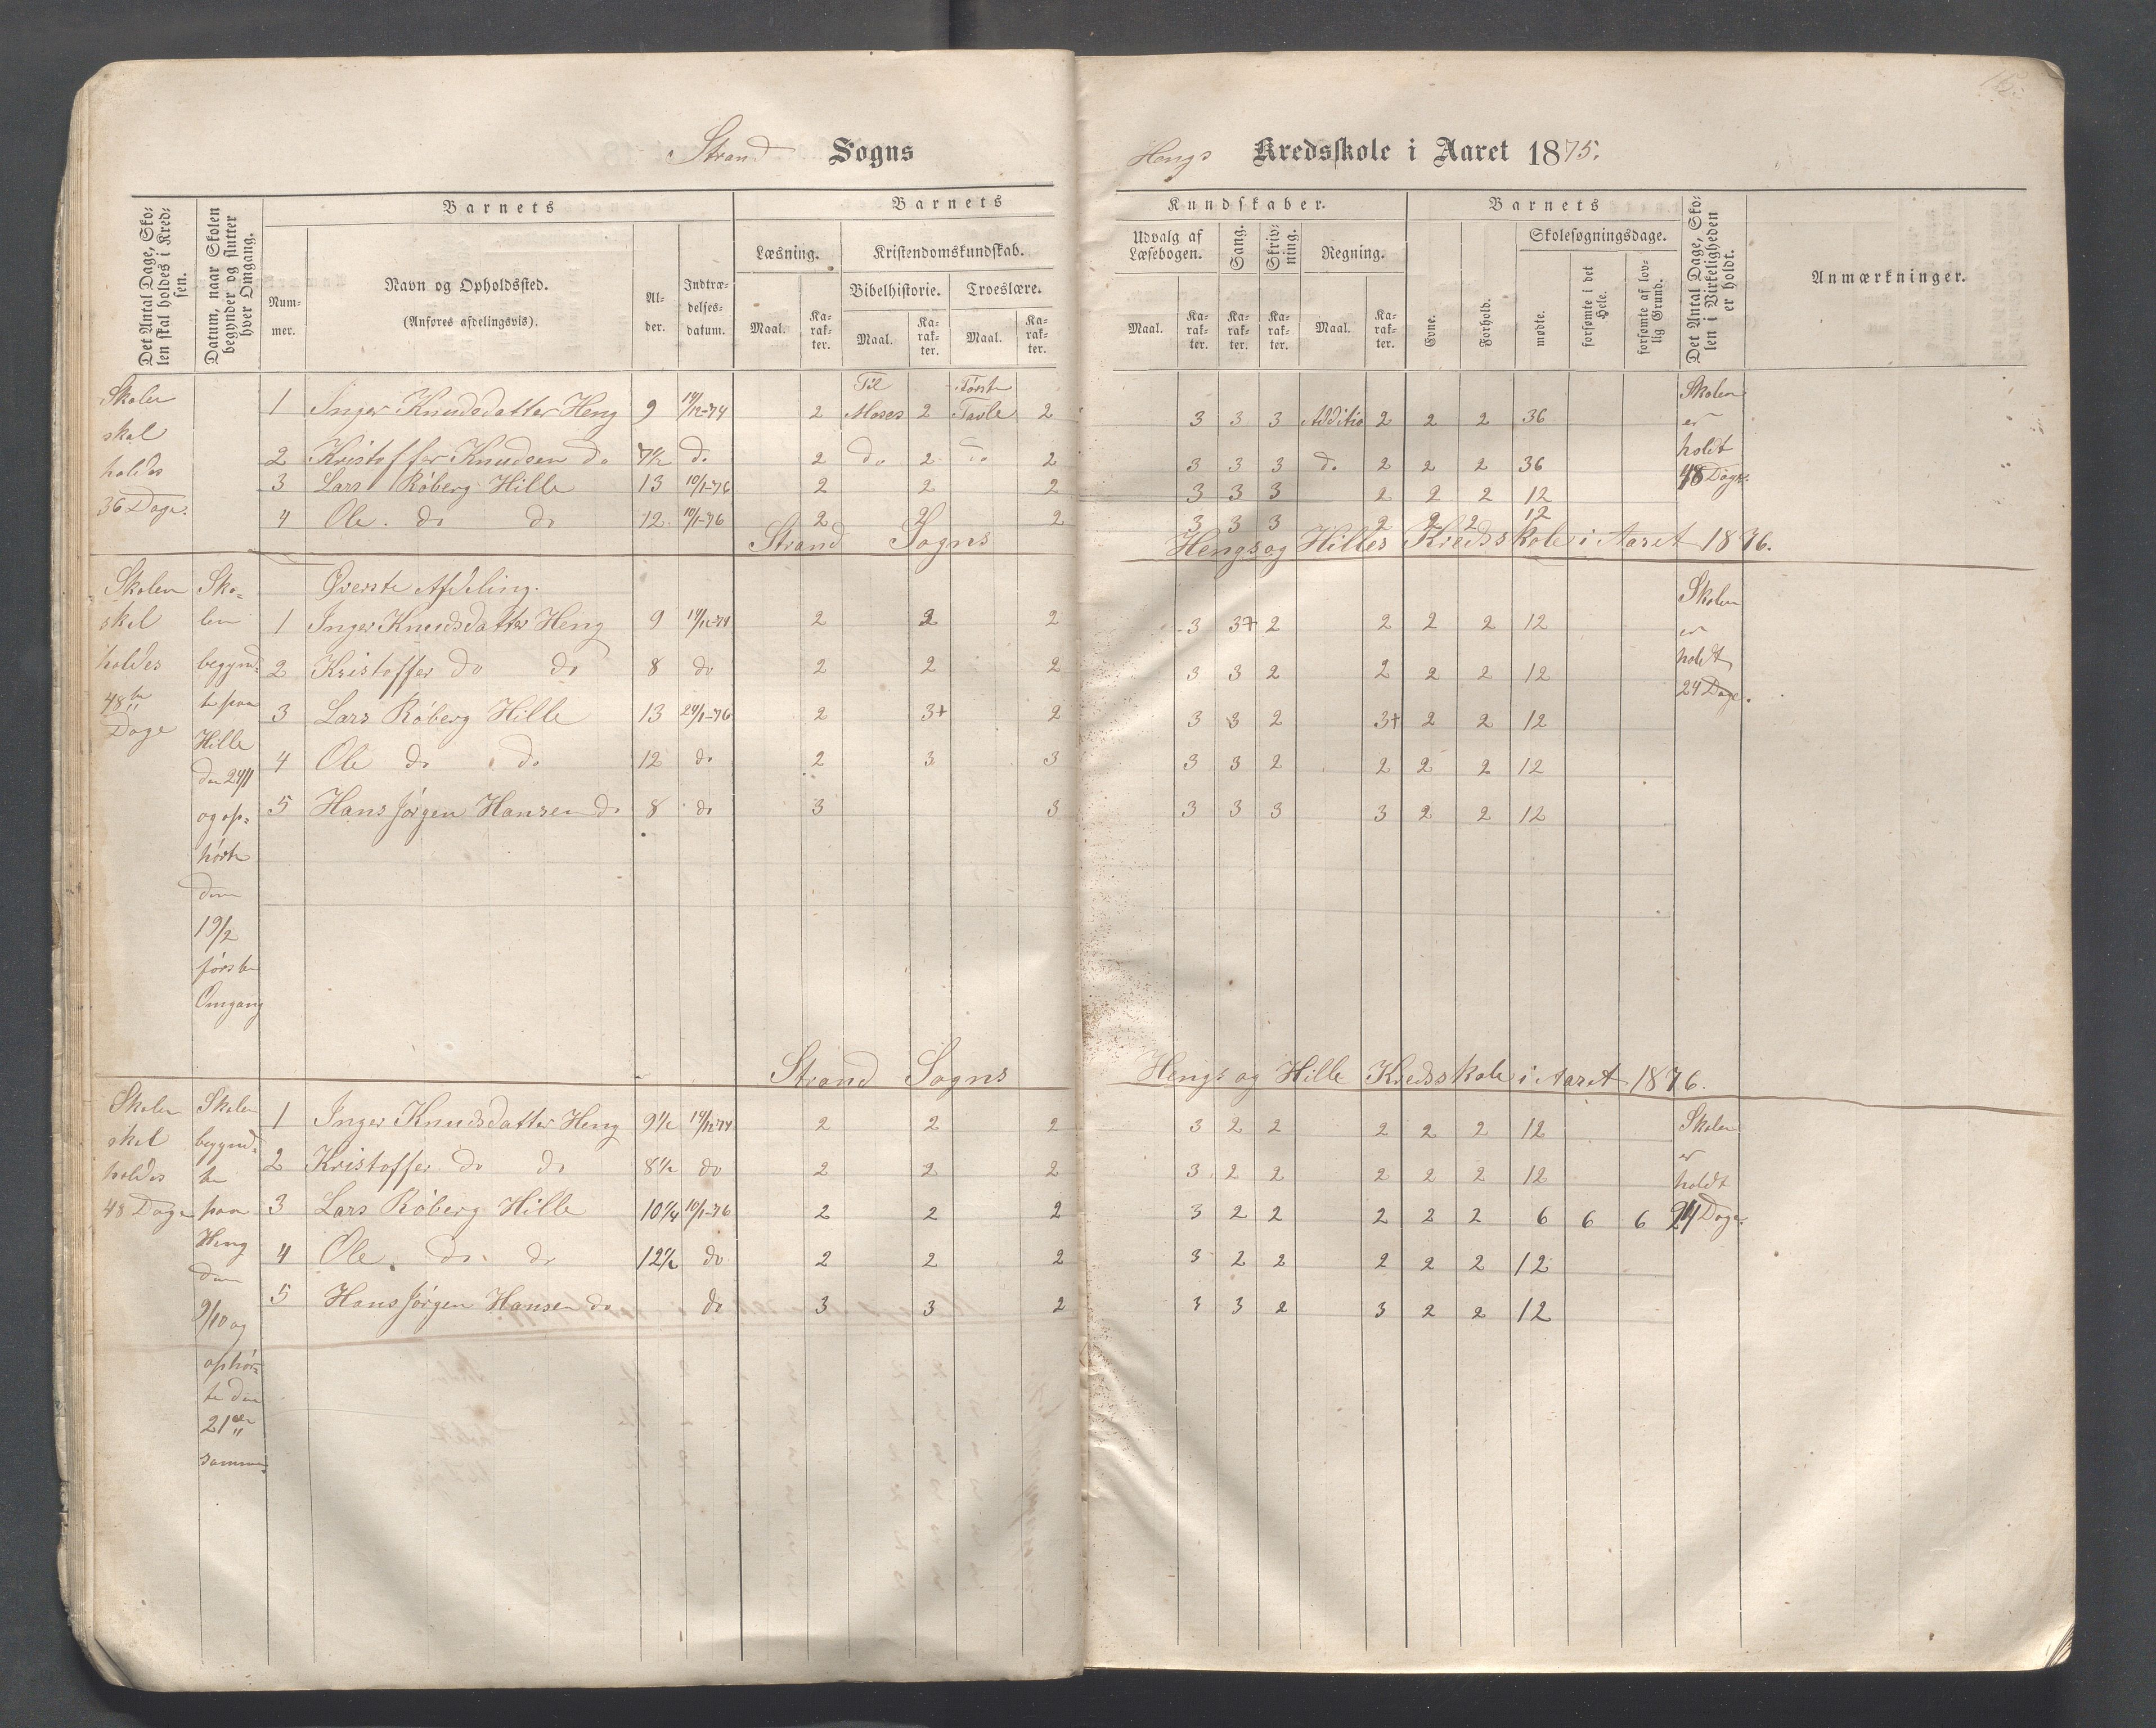 Strand Sogns Hengs Kredsskole i Aaret 1875.
Det Antal Dage, Sko-
len skal holdes i Kred-
sen.
Datum, naar Skolen
begynder og slutter
hver Omgang.
Barnets
Num-
mer.
Navn og Opholdssted.
(Anføres afdelingsvis).
Al-
der.
Indtræ-
delses-
datum.
Barnets
Læsning.
Maal.
Ka-
rak-
ter.
Kristendomskundskab.
Bibelhistorie.
Maal.
Ka-
rak-
ter.
Troeslære.
Maal.
Ka-
rak-
ter.
Kundskaber.
Udvalg af
Læsebogen.
Maal.
Ka-
rak-
ter.
Sang.
Ka-
rak-
ter.
Skriv-
ning.
Ka-
rak-
ter.
Regning.
Maal.
Ka-
rak-
ter.
Barnets
Evne.
Forhold.
Skolesøgningsdage.
mødte.
forsømte i det
Hele.
forsømte af lov-
lig Grund.
Det Antal Dage, Sko-
len i Virkeligheden
er holdt.
Anmærkninger.
Skolen
skal
holdes
36 Dage.
1 Inger Knudsdatter Heng 9 14/12-74 2 Til Moses 2 Første Tavle 2 3 3 3 Additio 2 2 2 36
2 Kristoffer Knudsen do 7½ do 2 do 2 do 2 3 3 3 do 2 2 2 36
3 Lars Röberg Hille 13 10/1-76 2 2 2 3 3 3 2 2 2 12
4 Ole do do 12 10/1-76 2 2 2 3 3 3 2 2 2 12
Skolen
er
holdt
48 Dage.
Strand Sogns Hengs og Hilles Kredsskole i Aaret 1876.
Skolen
skal
holdes
48
Dage
Sko-
len
begynd-
te paa
Hille
den 24/1
og op-
hørte
den
19/2
første
Omgang
Øverste Afdeling.
1 Inger Knudsdatter Heng 9 14/12-74 2 2 2 3 3+ 2 2 2 2 12
2 Kristoffer do do 8 do 2 2 2 3 3 2 2 2 2 12
3 Lars Röberg Hille 13 24/1-76 2 3+ 2 3 3 2 3+ 2 2 12
4 Ole do do 12 do 2 3 3 3 3 2 2 2 2 12
5 Hans Jørgen Hansen do 8 do 3 3 3 3 3 3 2 2 12
Skolen
er
holdt
24 Dage.
Strand Sogns Hengs og Hille Kredsskole i Aaret 1876.
Skolen
skal
holdes
48 Dage
Skolen
begynd-
te
paa
Heng
den
9/10 og
ophør-
te den
21
samme
1 Inger Knudsdatter Heng 9½ 14/12-74 2 2 2 3 2 2 2 2 2 12
2 Kristoffer do do 8½ do 2 2 2 3 2 2 2 2 2 12
3 Lars Röberg Hille 10¼ 10/1-76 2 2 2 3 2 2 2 2 2 6 6 6
4 Ole do do 12½ do 2 2 2 3 2 2 2 2 2 12
5 Hans Jørgen Hansen do do 3 3 2 3 3 2 3 2 2 12
Skolen
er
holdt
24 Dage.